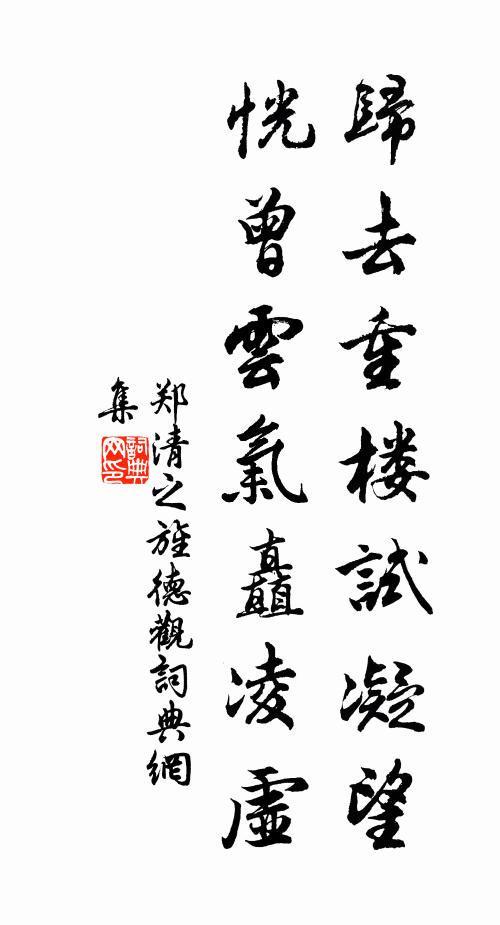 歸去重楼試凝望
恍曾雲氣矗凌虛
郑清之旌德觀詞典網
集
詞典網印